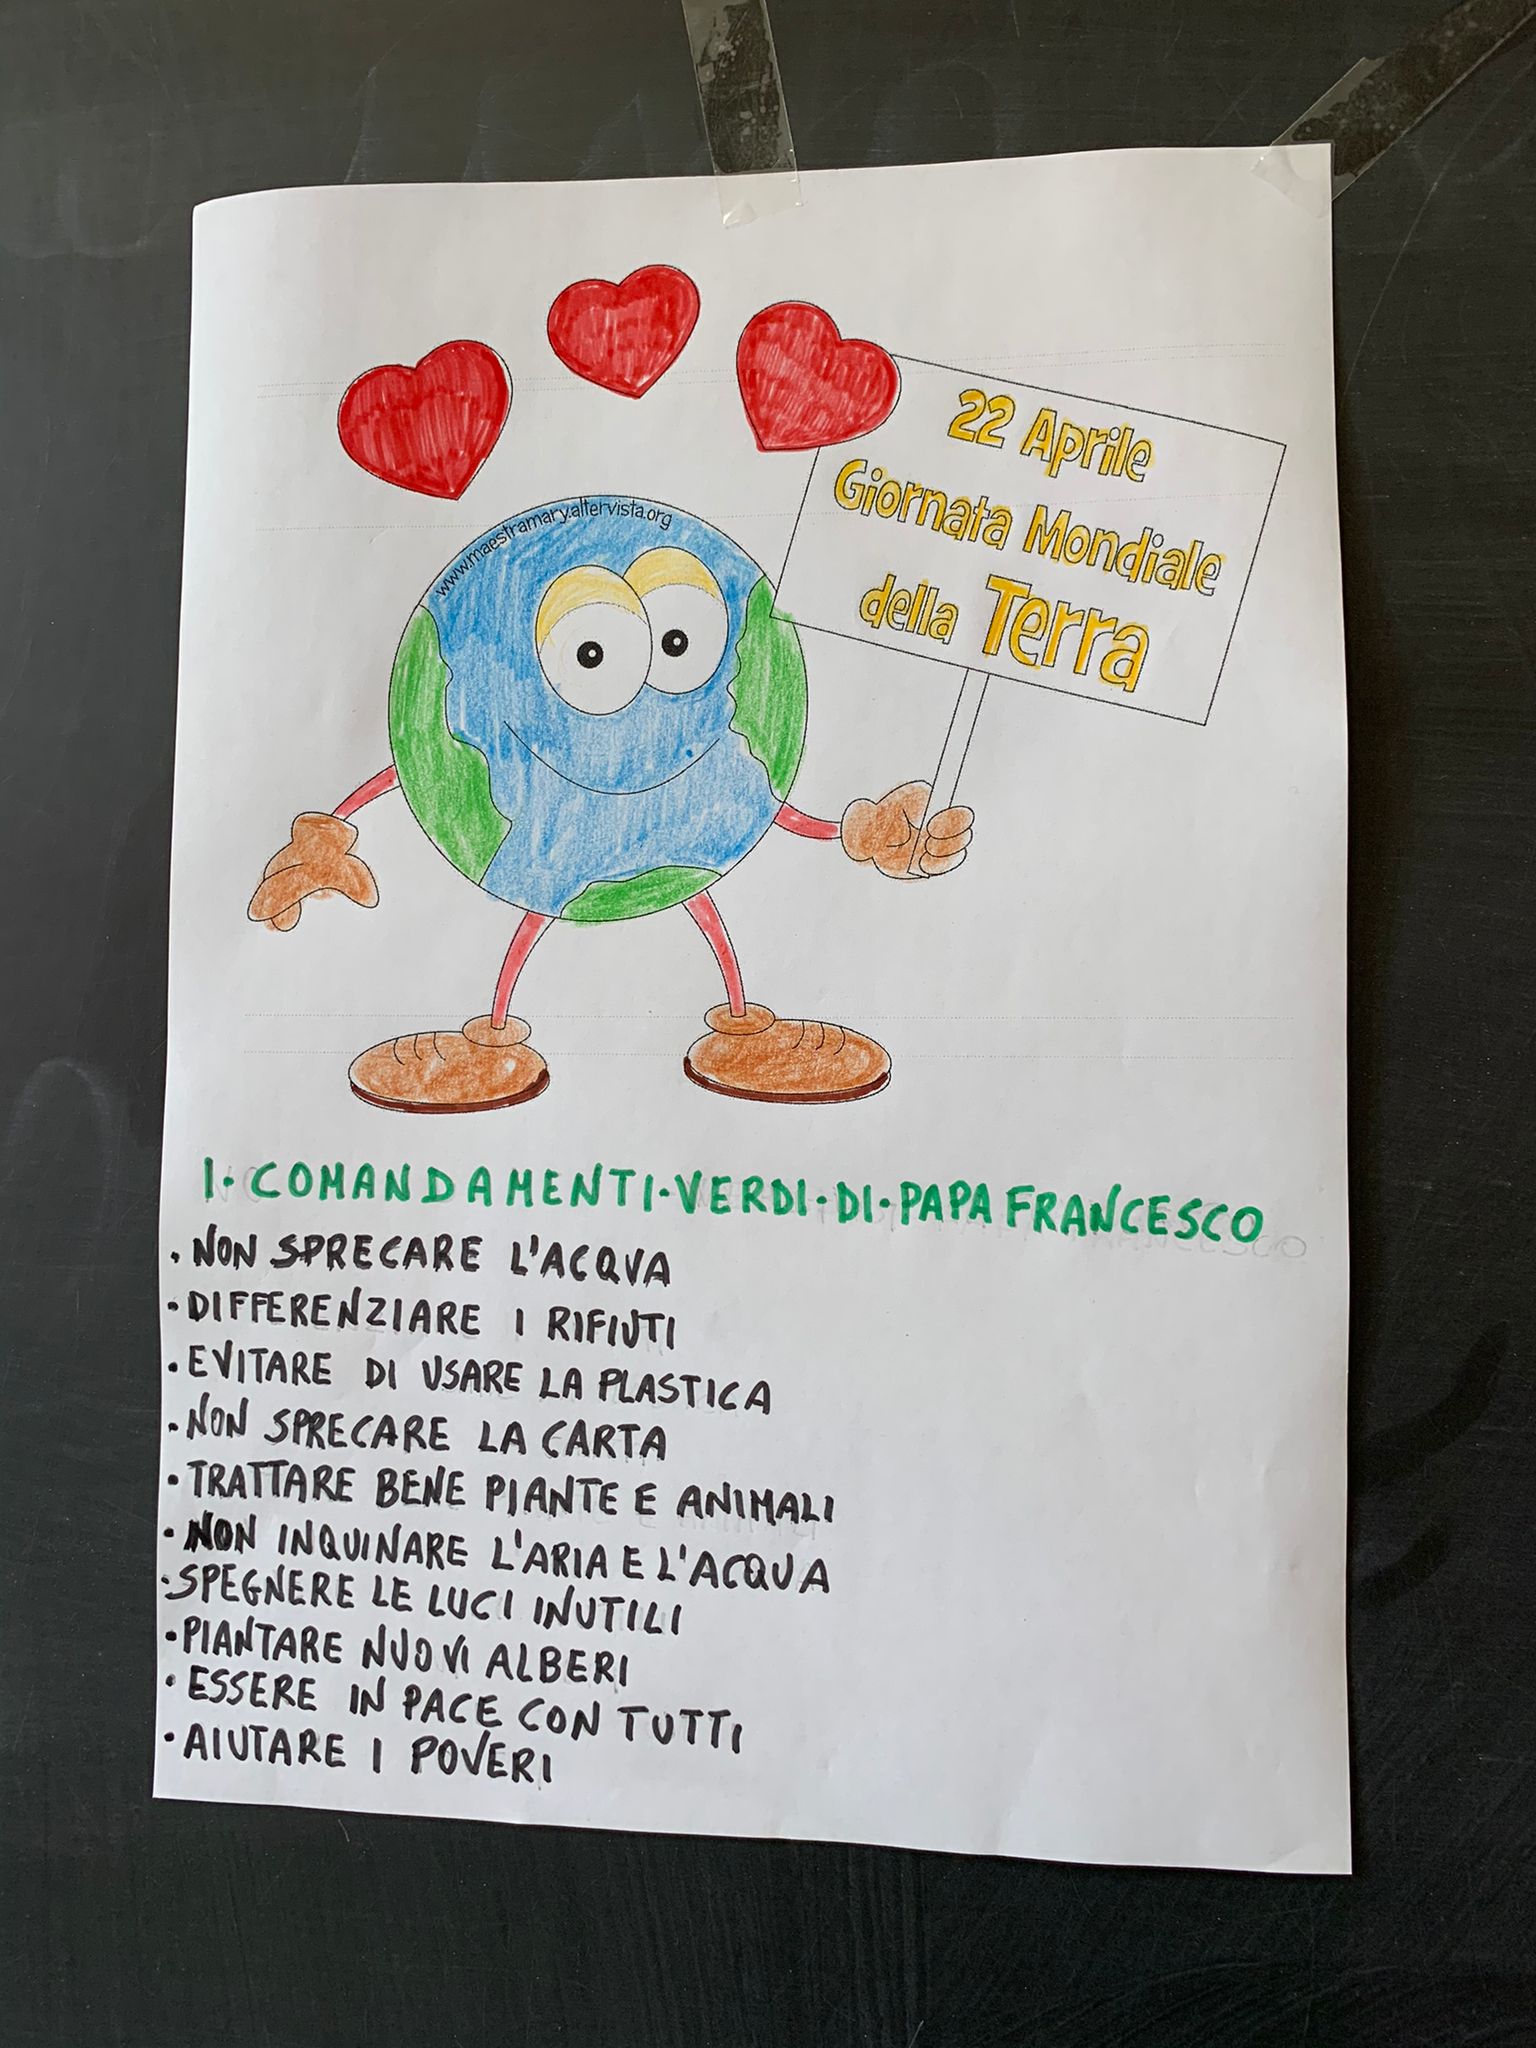 22 Aprile
Giornata Mondiale
della Terra
www.maestramary.altervista.org
I. COMANDAMENTI.VERDI.DI.PAPA FRANCESCO
. NON SPRECARE L'ACQVA
. DIFFERENZIARE I RIFIUTI
. EVITARE DI USARE LA PLASTICA
. NON SPRECARE LA CARTA
. TRATTARE BENE PIANTE E ANIMALI
. NON INQUINARE L'ARIA E L'ACQUA
. SPEGNERE LE LUCI INUTILI
. PIANTARE NUOVI ALBERI
. ESSERE IN PACE CON TUTTI
. AIUTARE I POVERI